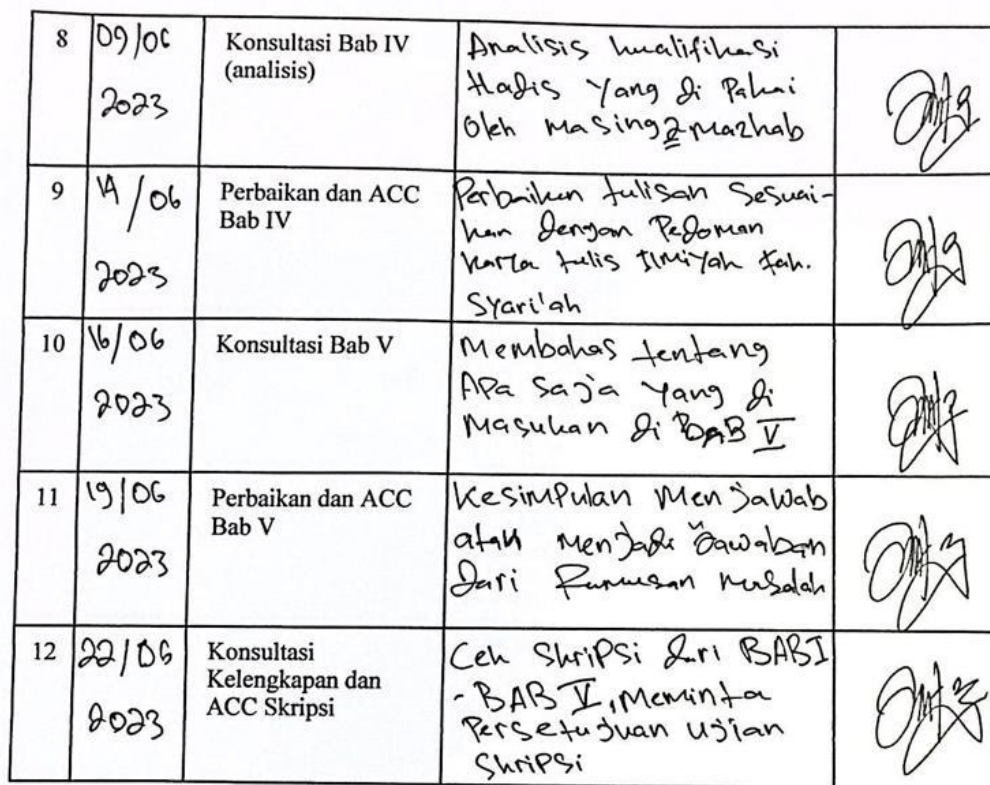 8
09/06
2023
Konsultasi Bab IV
(analisis)
Analisis kualifikasi
Hadis Yang di Pakai
Oleh masing2 mazhab
9
14/06
2023
Perbaikan dan ACC
Bab IV
Perbaikan tulisan Sesuai-
kan dengan Pedoman
karya tulis Ilmiyah Fak.
Syari'ah
10
16/06
2023
Konsultasi Bab V
Membahas tentang
APa saja Yang di
Masukan di BAB V
11
19/06
2023
Perbaikan dan ACC
Bab V
Kesimpulan Menjawab
atau Menjadi Jawaban
dari Rumusan masalah
12
22/06
2023
Konsultasi
Kelengkapan dan
ACC Skripsi
Cek Skripsi dari BAB I
- BAB V, Meminta
Persetujuan Ujian
Skripsi